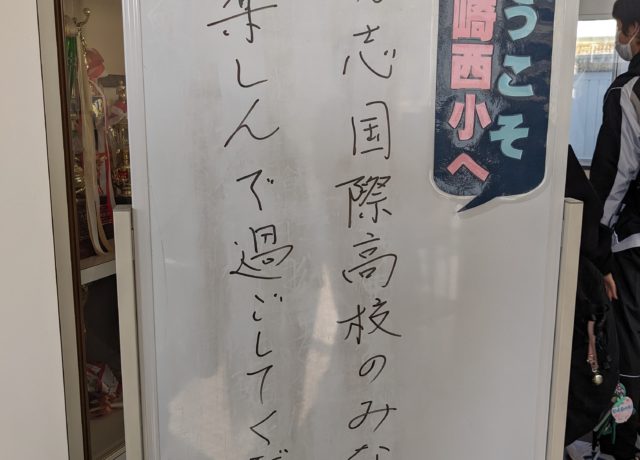 うこそ
崎西小へ
志国際高校のみな
楽しんで過ごしてくだ